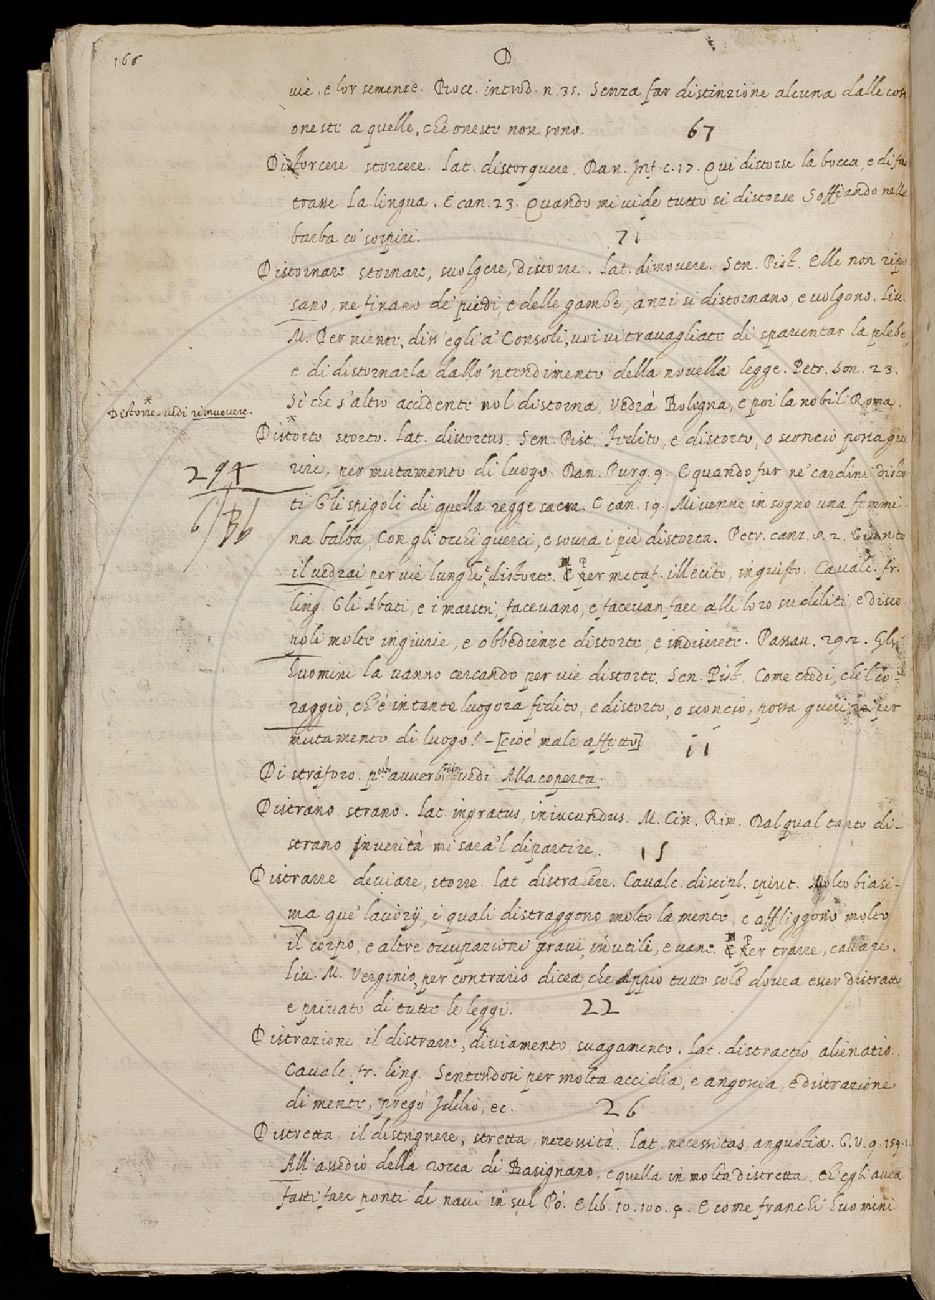 166
D
vie, e lor semenze. Bocc. introd. n. 35. Senza far distinzione alcuna dalle cose
oneste a quelle, che oneste non sono. 67
Distorcere storcere. lat. distorquere. Dan. Inf. c. 17. Qui distorse la bocca, e di fuor
trasse la lingua. E can. 23. Quando mi vide tutto si distorse Soffiando nella
barba co' sospiri. 71
Distornare stornare, svolgere, distorre. lat. dimovere. Sen. Pist. Elle non ripo
sano, ne tirano de' piedi, e delle gambe, anzi si distornano, e volgono. Liv.
M. Per niente, diss'egli a' Consoli, voi vi travagliate di spaventar la plebe,
e di distornarla dallo 'ntendimento della novella legge. Petr. Son. 23.
Sì che s'altro accidente nol distorna, Vedrà Bologna, e poi la nobil Roma.
* Distorre vedi rimuovere.
* Distorto storto. lat. distortus. Sen. Pist. Fedito, e distorto, o sconcio possa gue
294
rire, per mutamento di luogo. Dan. Purg. 9. E quando fur ne' cardini distor
ti Gli spigoli di quella regge sacra. E can. 19. Mi venne in sogno una femmi
6/Bb
na balba, Con gli occhi guerci, e sovra i piè distorta. Petr. canz. 8. 2. Quanto
il vedrai per vie lunghe, distorte. E Per metaf. illecito, ingiusto. Cavalc. fr.
ling. Gli Abati, e i maestri, facevano, e facevan fare alli loro sudditi, e disce
poli molte ingiurie, e obbedienze distorte, e indiscrete. Passav. 292. Gli
huomini la vanno cercando per vie distorte. Sen. Pist. Come credi, che 'l co-
raggio, ch'è in tante luogora fedito, e distorto, o sconcio, possa guerire per
mutamento di luogo? - [cioè male affetto] 11
Di straforo. posto avverbialm. vedi Alla coperta.
Distrano strano. lat. ingratus, iniucundus. M. Cin. Rim. Dal qual tanto di-
strano In verità mi sarà 'l dipartire. 15
Distrarre deviare, storre. lat. distrahere. Cavalc. discipl. spirit. Molto biasi-
ma que' lavorij, i quali distraggono molto la mente, e affliggono molto
il corpo, e altre occupazioni gravi, inutili, e vane. E Per trarre, cavare.
Liv. M. Verginio, per contrario dicea, che Appio tutto solo dovea esser distratto
e privato di tutte le leggi. 22
Distrazione il distrarre, diviamento, svagamento. lat. distractio alienatio.
Cavalc. fr. ling. Sentendosi per molta accidia, e angoscia, e distrazione
di mente, pregò Iddio, ec. 26
Distretta. il distrignere, stretta necessità. lat. necessitas, angustia. G. V. 9. 159. 1.
All'assedio della rocca di Basignano, e quella in molta distretta, ch'egli avea
fatti fare ponti di navi in sul Pò. E lib. 10. 100. 5. E come franchi huomini